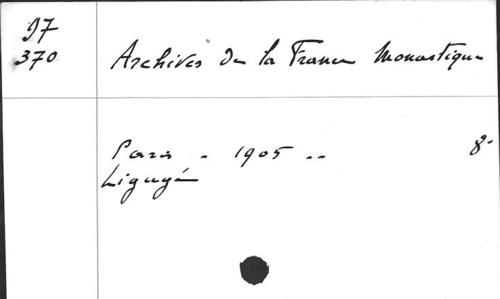 D7
370
Archives de la France Monastique
Paris - 1905 --
8°
Ligugé